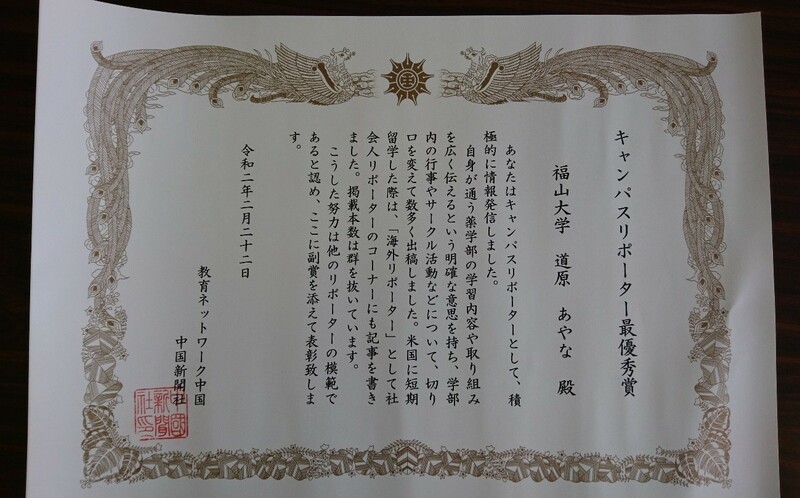 キャンパスリポーター最優秀賞
福山大学 道原 あやな 殿
あなたはキャンパスリポーターとして、積
極的に情報発信しました。
自身が通う薬学部の学習内容や取り組み
を広く伝えるという明確な意思を持ち、学部
内の行事やサークル活動などについて、切り
口を変えて数多く出稿しました。米国に短期
留学した際は、「海外リポーター」として社
会人リポーターのコーナーにも記事を書き
ました。掲載本数は群を抜いています。
こうした努力は他のリポーターの模範で
あると認め、ここに副賞を添えて表彰致しま
す。
令和二年二月二十二日
教育ネットワーク中国
中国新聞社
中國
新聞
社印